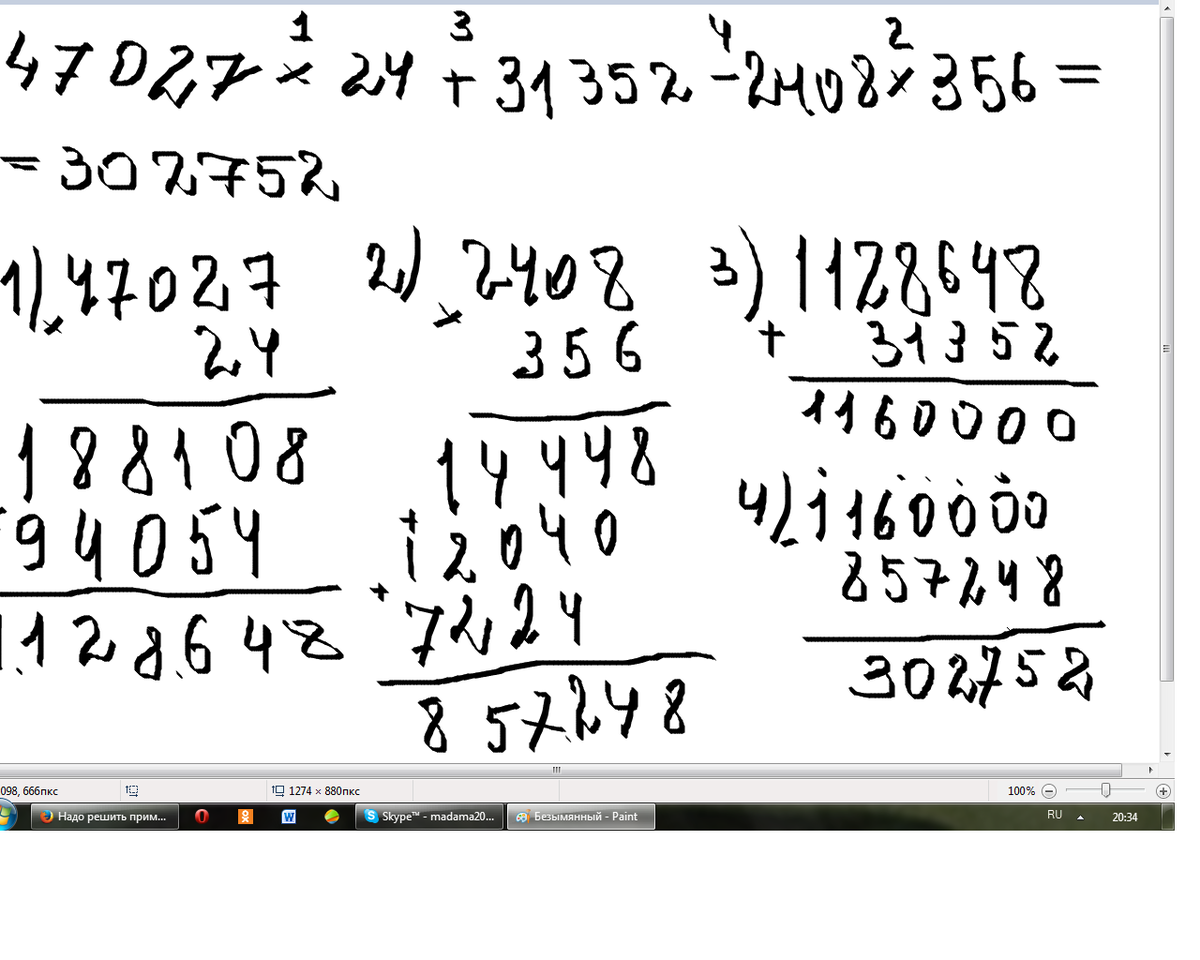 1 3 4 2
47027 × 24 + 31352 - 2408 × 356 =
= 302752
1) 47027 2) 2408 3) 1128648
× 24 × 356 + 31352
188108 14448 1160000
94054 + 12040 4) - 1160000
1128648 + 7224 857248
857248 302752
098, 666пкс 1274 × 880пкс 100%
Надо решить прим... Skype™ - madama20... Безымянный - Paint RU 20:34